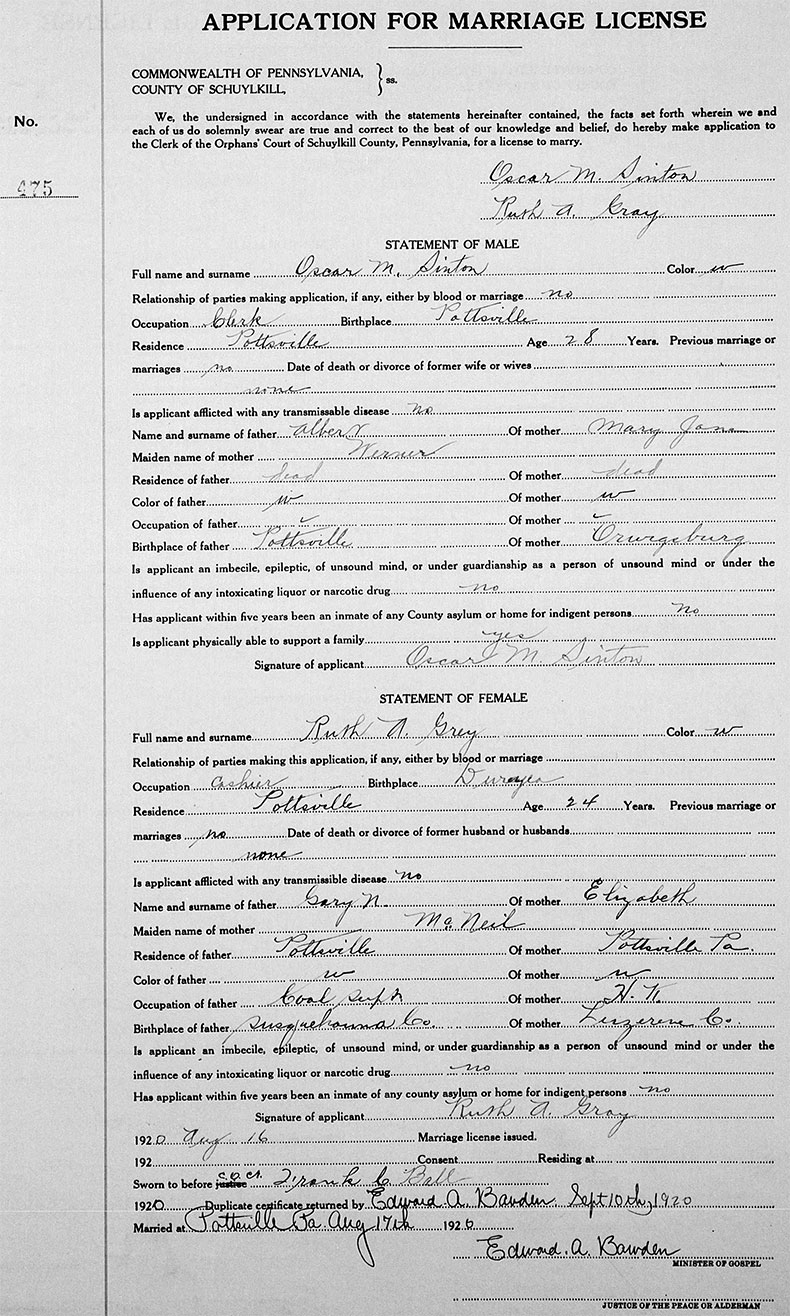 APPLICATION FOR MARRIAGE LICENSE
COMMONWEALTH OF PENNSYLVANIA,
COUNTY OF SCHUYLKILL, } ss.
No.
475
We, the undersigned in accordance with the statements hereinafter contained, the facts set forth wherein we and
each of us do solemnly swear are true and correct to the best of our knowledge and belief, do hereby make application to
the Clerk of the Orphans' Court of Schuylkill County, Pennsylvania, for a license to marry.
Oscar M. Sinton
Ruth A. Gray
STATEMENT OF MALE
Full name and surname Oscar M. Sinton Color w
Relationship of parties making application, if any, either by blood or marriage no
Occupation Clerk Birthplace Pottsville
Residence Pottsville Age 28 Years. Previous marriage or
marriages no Date of death or divorce of former wife or wives
none
Is applicant afflicted with any transmissable disease no
Name and surname of father Albert Of mother Mary Jane
Maiden name of mother Werner
Residence of father dead Of mother dead
Color of father w Of mother w
Occupation of father Of mother
Birthplace of father Pottsville Of mother Orwigsburg
Is applicant an imbecile, epileptic, of unsound mind, or under guardianship as a person of unsound mind or under the
influence of any intoxicating liquor or narcotic drug no
Has applicant within five years been an inmate of any County asylum or home for indigent persons no
Is applicant physically able to support a family yes
Signature of applicant Oscar M. Sinton
STATEMENT OF FEMALE
Full name and surname Ruth A. Grey Color w
Relationship of parties making this application, if any, either by blood or marriage
Occupation Cashier Birthplace Duryea
Residence Pottsville Age 24 Years. Previous marriage or
marriages no Date of death or divorce of former husband or husbands
none
Is applicant afflicted with any transmissible disease no
Name and surname of father Gary N. Of mother Elizabeth
Maiden name of mother McNeil
Residence of father Pottsville Of mother Pottsville Pa.
Color of father w Of mother w
Occupation of father Coal Supt Of mother H. K.
Birthplace of father Susquehanna Co. Of mother Luzerne Co.
Is applicant an imbecile, epileptic, of unsound mind, or under guardianship as a person of unsound mind or under the
influence of any intoxicating liquor or narcotic drug no
Has applicant within five years been an inmate of any county asylum or home for indigent persons no
Signature of applicant Ruth A. Gray
1920 Aug 16 Marriage license issued.
192 Consent Residing at
Sworn to before justice Frank C. Ball
1920 Duplicate certificate returned by Edward A. Bawden Sept 10th, 1920
Married at Pottsville Pa Aug 17th 1920
Edward. A. Bawden
MINISTER OF GOSPEL
JUSTICE OF THE PEACE OR ALDERMAN